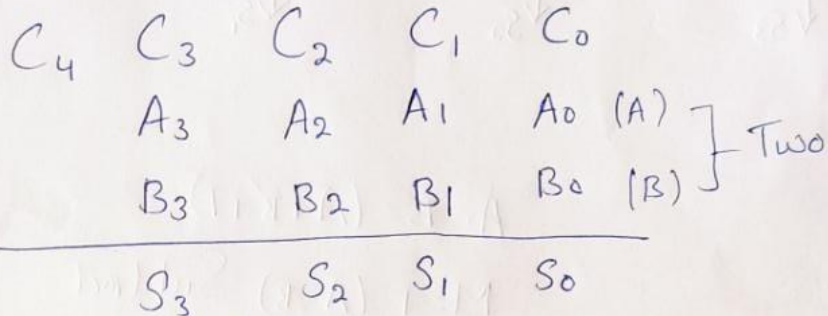 C₄ C₃ C₂ C₁ C₀
A₃ A₂ A₁ A₀ (A)
Two
B₃ B₂ B₁ B₀ (B)
S₃ S₂ S₁ S₀